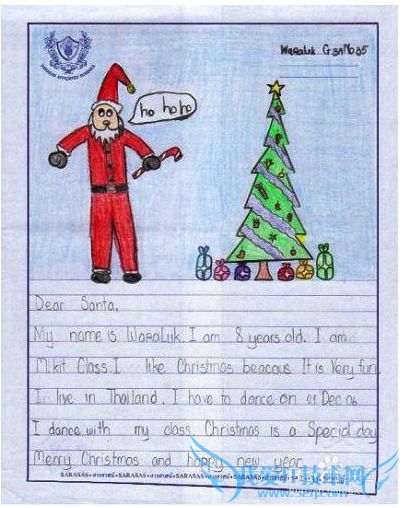 SARASAS AFFILIATED SCHOOLS
Waraluk G 3A No 35
ho ho ho
Dear Santa,
My name is Waraluk. I am 8 years old. I am
Mikit Class. I like Christmas beacous It is Very fun.
I live in Thailand. I have to dance on 21 Dec 06
I dance with my class. Christmas is a Special day
Merry Christmas and happy new year
SARASAS • SARASAS • SARASAS • SARASAS